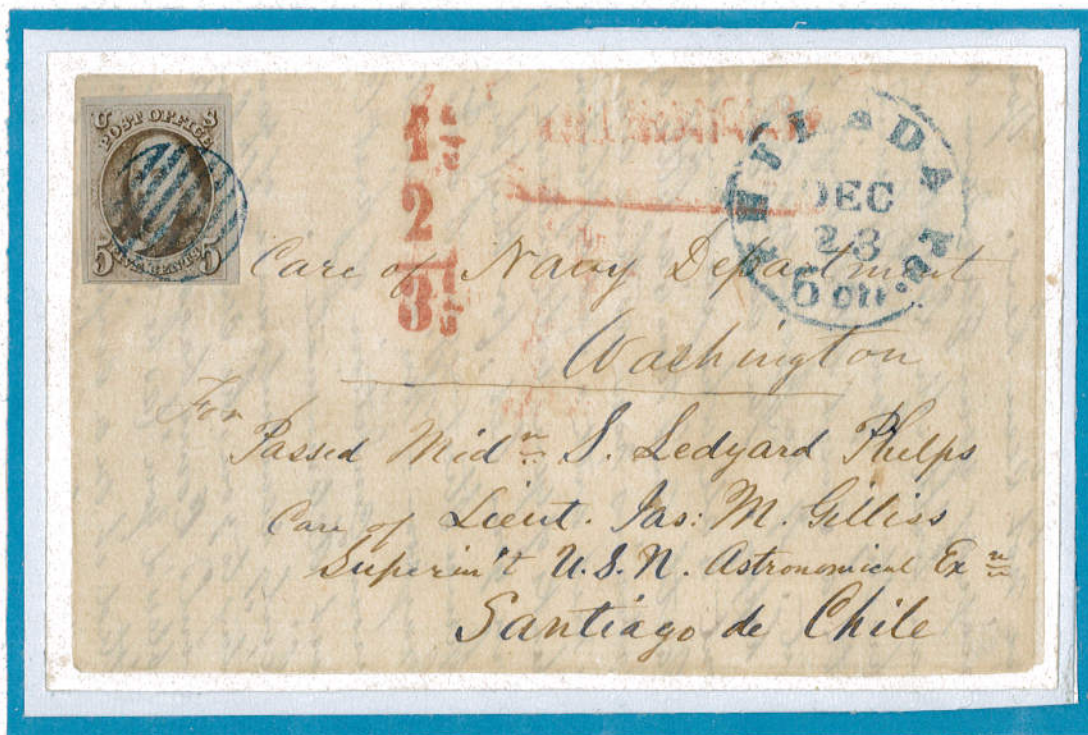 U S
POST OFFICE
5 FIVE CENTS 5
1 1/2
2
3 1/2
PHILADA Pa.
DEC
23
5 cts.
Care of Navy Department
Washington
For
Passed Midn. S. Ledyard Phelps
Care of Lieut. Jas: M. Gilliss
Superin't U.S.N. Astronomical Exn
Santiago de Chile